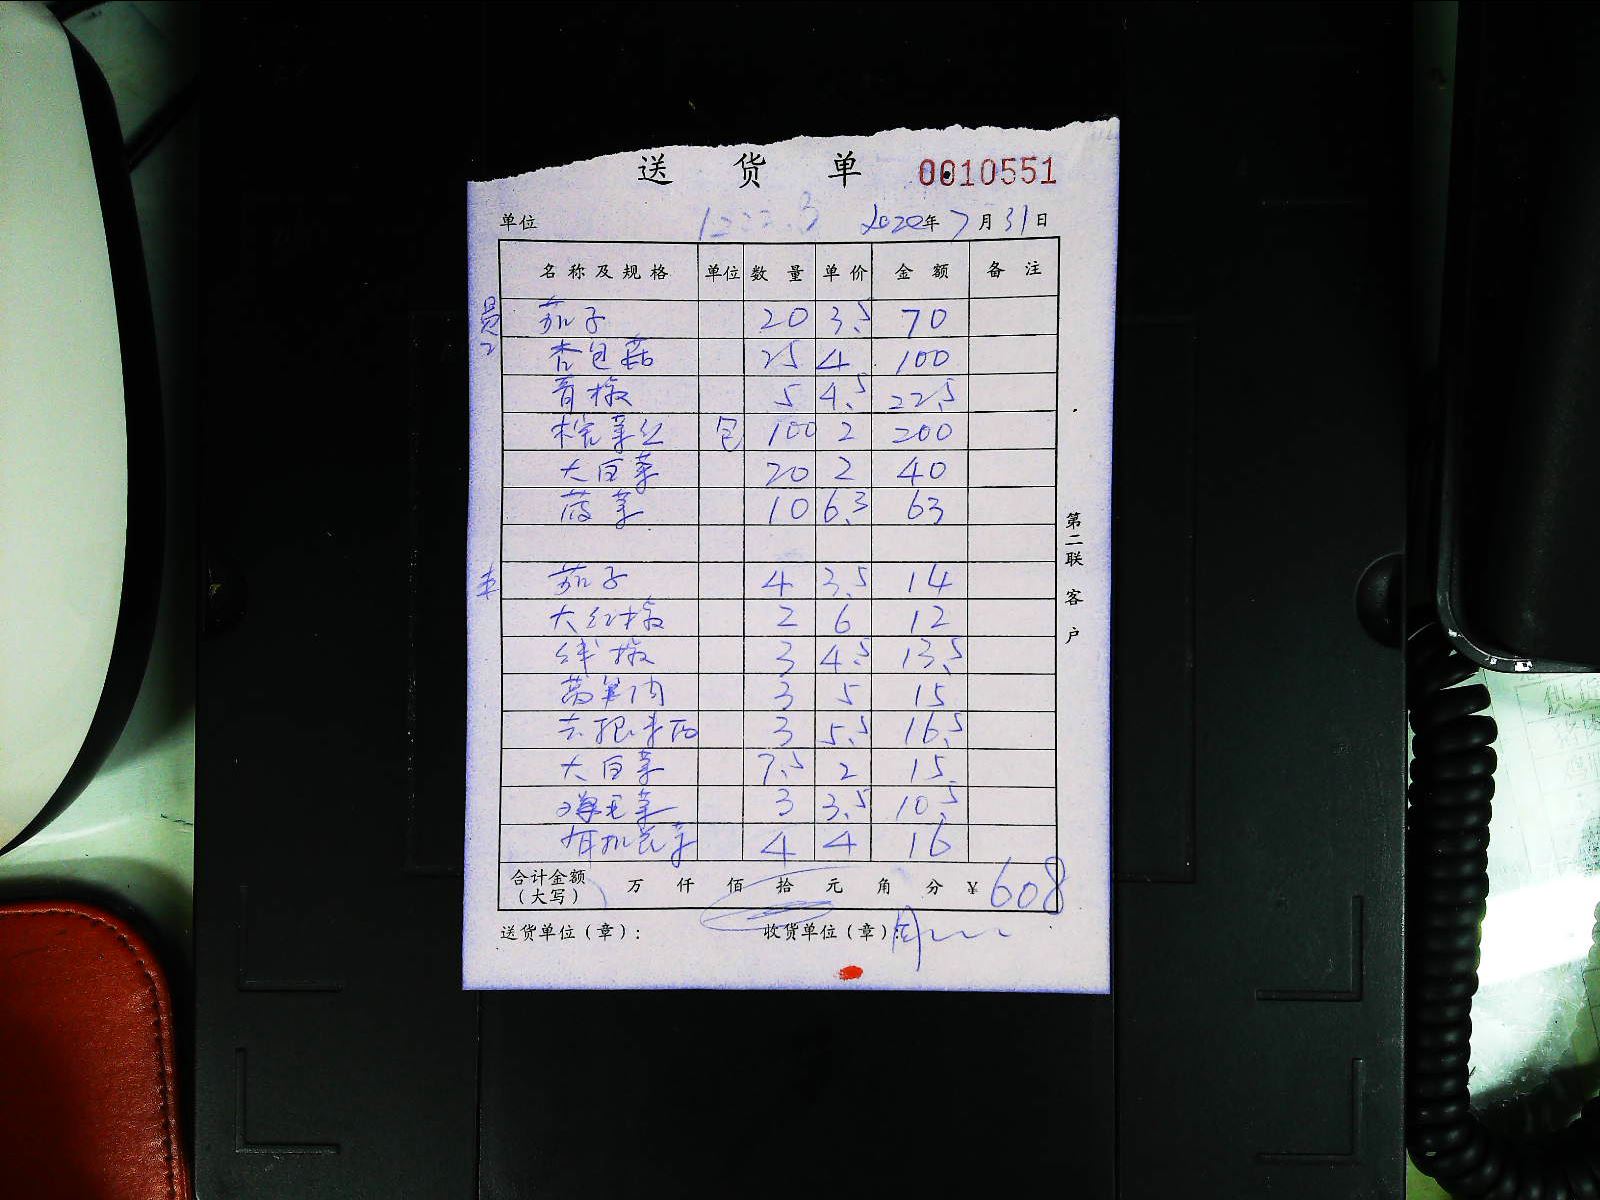 送货单 0010551
单位 2020年7月31日
名称及规格 单位 数量 单价 金额 备注
员工 茄子 20 3.5 70
杏包菇 25 4 100
青椒 5 4.5 22.5
榨菜丝 包 100 2 200
大白菜 20 2 40
菠菜 10 6.3 63
茄子 4 3.5 14
大红椒 2 6 12
线椒 3 4.5 13.5
莴笋肉 3 5 15
去根 3 5.5 16.5
大白菜 7.5 2 15
菜 3 3.5 10.5
有机花菜 4 4 16
合计金额(大写) 万 仟 佰 拾 元 角 分 ¥608
送货单位(章): 收货单位(章):
第二联 客户